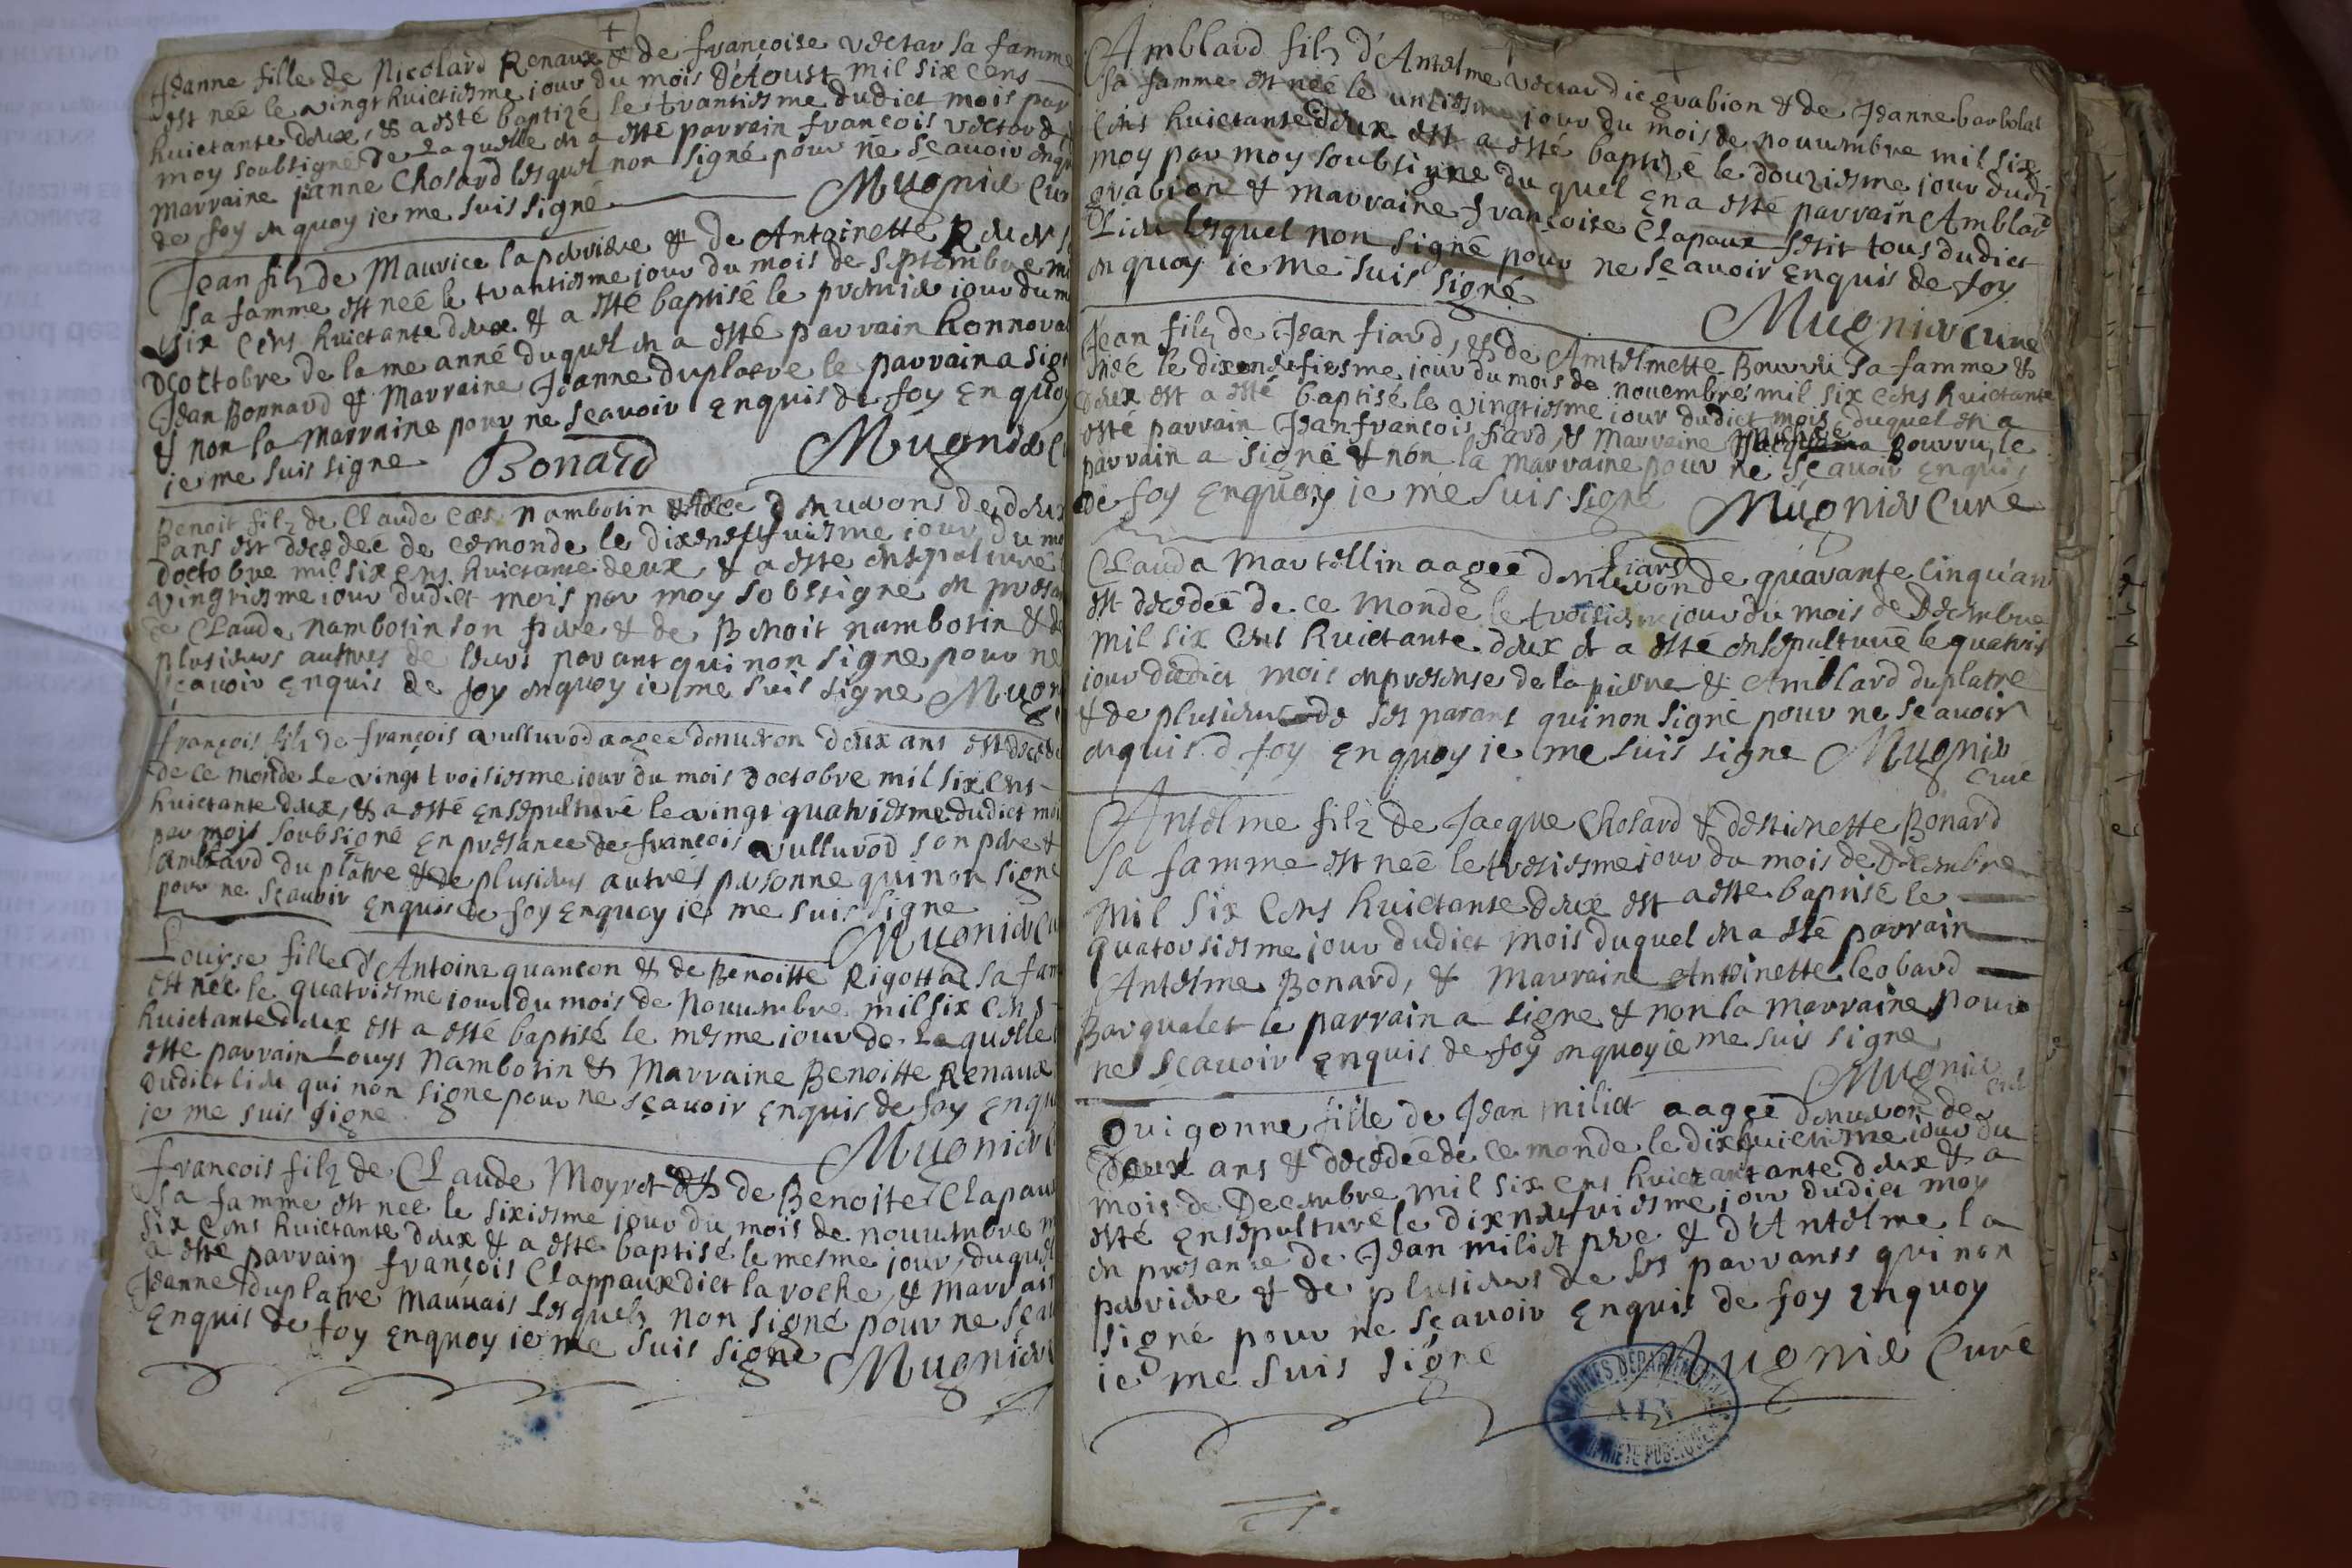 Jeanne fille de Nicolard Renaux & de françoise vectar sa famme
est née le vingt huictiesme jour du mois d'Aoust mil six cens
huictante deux, & a esté baptizé le trantiesme dudict mois par
moy soubsigné de laquelle en a esté parrain françois vectard &
marraine janne Cholard lesquel non signé pour ne sçavoir enquis
de foy en quoy ie me suis signé Mugnier Cur
Jean filz de Mauvice la perriere & de Antoinette
sa famme est née le trantiesme jour du mois de septembre mi
six cens huictante deux & a esté baptisé le premier iour du m
d'octobre de la me anné duquel en a esté parrain honnora
Jean Bonnard & Marraine Jeanne duplatre le parrain a sig
& non la marraine pour ne sçavoir enquis de foy en quoy
ie me suis signe Bonard Mugnier C
Benoit filz de Claude Nambotin d'enuirons de deux
ans est decedeé de ce monde le dixeneufuiesme iour du mo
d'octobre mil six cens huictante deux & a esté ensepulturé
vingtiesme iour dudict mois par moy sobssigné en presan
Claude nambotin son pere & de Benoit nambotin & d
plusieurs autres de leurs parant qui non signe pour ne
sçauoir enquis de foy enquoy ie me suis signe Mugn
françois filz de françois vulluvod aageé denuiron deux ans est decede
de ce monde le vingt troisiesme iour du mois d'octobre mil six cens
huictante deux, & a esté ensepulturé le vingt quatriesme dudict moi
par mois soubsigné en presance de françois vulluvod son pere &
amblard du platre & de plusieurs autres personne qui non signe
pour ne sçauoir enquis de foy enquoy ie me suis signe
Mugnier Cu
Louyse fille d'Antoine quancon & de Benoitte Rigottad sa fam
est née le quatriesme iour du mois de nouuembre mil six cens
huictante deux est a esté baptisé le mesme iour de laquelle
esté parrain Louys Nambotin & Marraine Benoitte Renaux
dudict lieu qui non signe pour ne sçavoir enquis de foy enqu
ie me suis signe
Mugnier C
françois filz de Claude Moyret & de Benoite Clapaux
sa famme est neé le sixiesme jour du mois de nouuembre m
six cens huictante deux & a esté baptisé le mesme jour, duquel
a esté parrain françois Clappaux dict la roche, & marrain
Jeanne duplatre mauuais lesquelz non signé pour ne sçau
enquis de foy enquoy ie me suis signé Mugnier
Amblard filz d'Antelme vectar dic grabion & de Jeanne barbolat
sa famme est neé le unziesme jour du mois de nouuembre mil six
cens huictante deux est a esté baptizé le douziesme jour dudi
moy par moy soubsigne du quel en a esté parrain Amblard
grabion & marraine françoise Clapaux tous dudict
Lieu lesquel non signé pour ne sçauoir enquis de foy
en quoy ie me suis signé
Mugnier Curé
Jean filz de Jean fiard, & de Amtelmette Bourru sa famme &
neé le dixeneufiesme iour du mois de nouembre mil six cens huictante
deux est a esté baptisé le vingtiesme iour dudict mois duquel en a
esté parrain Jean françois fiard, & marraine Bourru, le
parrain a signé & non la marraine pour ne sçauoir enquis
de foy enquoy ie me suis signé Mugnier Cure
fiard
Clauda Martellin aageé denuiron de quarante cinqu'an
est decedeé de ce monde le troisiesme jour du mois de decembre
mil six cens huictante deux & a esté ensepulturuë le quatries
iour dudict mois enpresense de la pierre & Amblard duplatre
& de plusieurs de ses parans qui non signé pour ne sçauoir
enquis d foy enquoy ie me suis signe Mugnier
Curé
Antelme filz de Jacque Cholard & d'estienette Bonard
sa famme est neé le troisiesme iour du mois de decembre
mil six cens huictante deux est a esté baptisé le
quatorsiesme jour dudict mois duquel en a esté parrain
Antelme Bonard, & marraine Antoinette leobard
Barqualet le parrain a signe & non la marraine pour
ne sçauoir enquis de foy enquoy ie me suis signe
Mugnier Cu
Guigonne fille de Jean miliet aageé denuiron de
deux ans & decedeé de ce monde le dixhuictiesme iour du
mois de Decembre mil six cens huictantante deux & a
esté ensepulturé le dixneufuiesme iour dudict moy
en presance de Jean miliet pere & d'Antelme la
pariere & de plusieurs de ses parrants qui non
signé pour ne sçauoir enquis de foy enquoy
ie me suis signé Mugnier Curé
ARCHIVES DEPARTEMENTALES
AIN
PROPRIETE PUBLIQUE